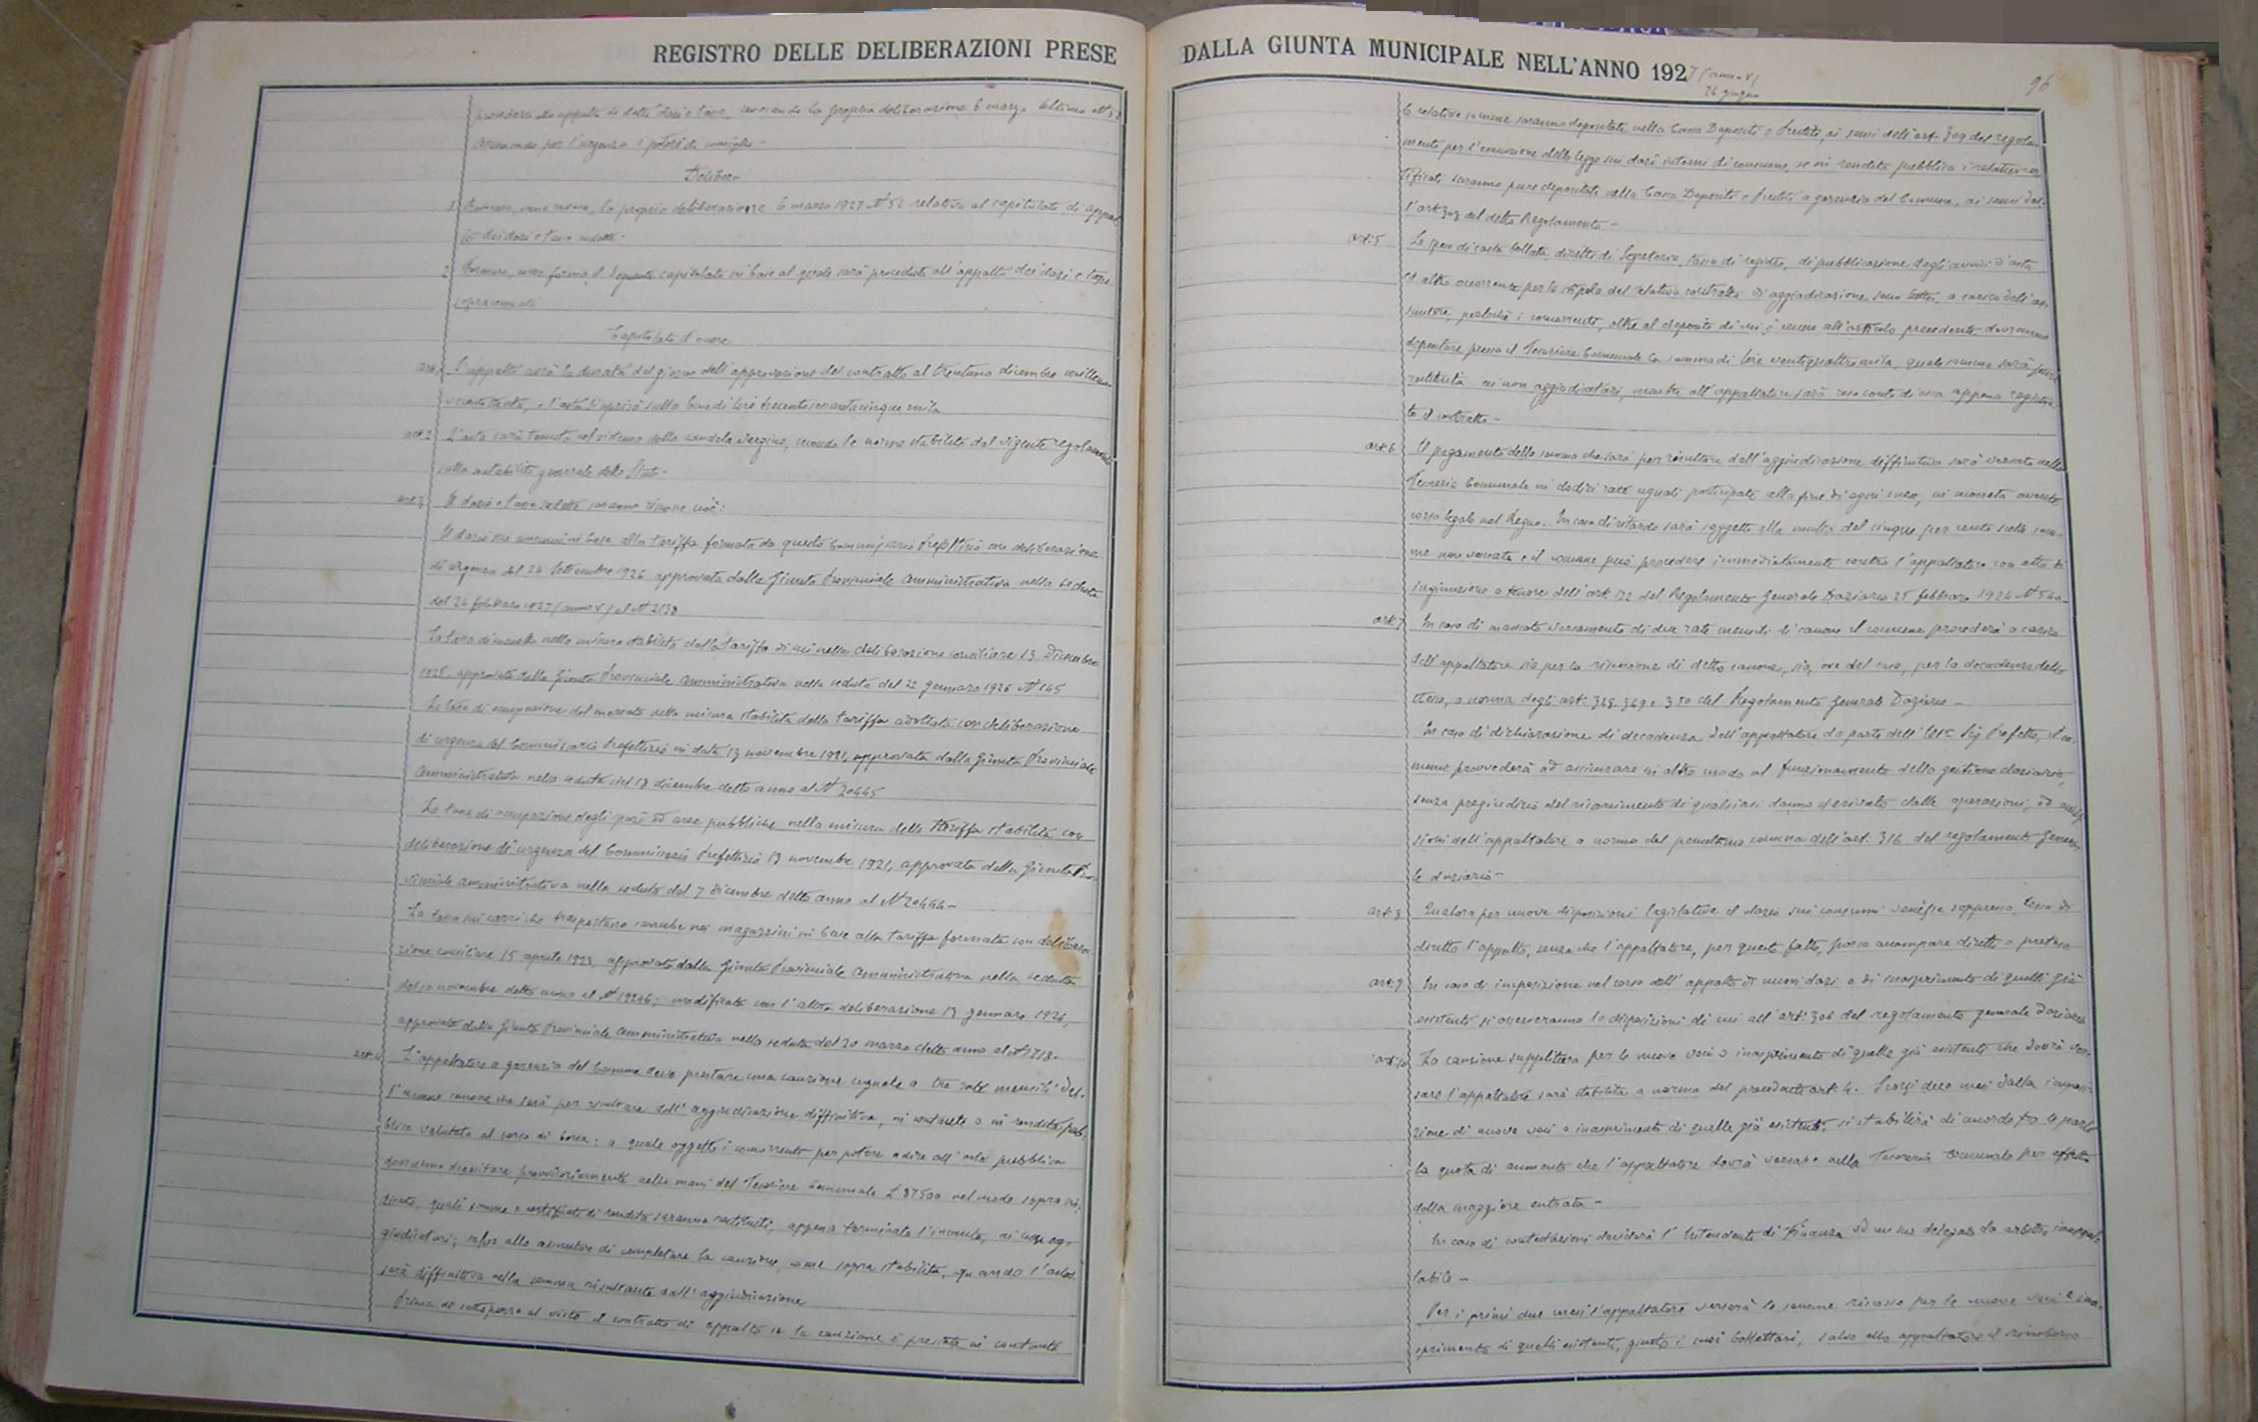 REGISTRO DELLE DELIBERAZIONI PRESE
procedersi appalto di detti dazi e tasse, revocando la propria deliberazione 6 marzo ultimo N° 52
assumendo per l'urgenza i poteri di consiglio -
Delibera
1° Revocare, come revoca, la propria deliberazione 6 marzo 1927 N° 52 relativa al capitolato di appal
to dei dazi e tasse
2° Formare, come forma, il seguente capitolato in base al quale sarà proceduto all'appalto dei dazi e tasse
sopracennati
Capitolato d'onere
art. 1 L'appalto avrà la durata dal giorno dell'approvazione del contratto al trentuno dicembre mille
e l'asta si aprirà sulla base di lire trecentocinquantacinque mila
art. 2 L'asta sarà tenuta col sistema della candela vergine, secondo le norme stabilite dal vigente regolamento
sulla contabilità generale dello Stato -
art. 3 I dazi e tasse saranno riscosse cioè:
I dazi sui consumi in base alla tariffa formata da questo Commissario Prefettizio con deliberazione
di urgenza del 24 Settembre 1926 approvata dalla Giunta Provinciale Amministrativa nella seduta
del 24 febbraio 1927 (anno V) al N° 2138
La tassa di macello nella misura stabilita dalla tariffa di cui nella deliberazione consiliare 13 Dicembre
1925 approvata dalla Giunta Provinciale Amministrativa nella seduta del 22 gennaio 1926 N° 145
La tassa di occupazione del mercato nella misura stabilita dalla tariffa adottata con deliberazione
di urgenza del Commissario Prefettizio in data 13 novembre 1926, approvata dalla Giunta Provinciale
Amministrativa nella seduta del 18 dicembre detto anno al N° 20445
La tassa di occupazione degli spazi ed aree pubbliche nella misura della tariffa stabilita con
deliberazione di urgenza del Commissario Prefettizio 13 novembre 1926, approvata dalla Giunta Pro
vinciale amministrativa nella seduta del 7 dicembre detto anno al N° 20444 -
La tassa sui carri che trasportano carrube nei magazzini in base alla tariffa formata con delibera
zione consiliare 15 aprile 1923, approvata dalla Giunta Provinciale Amministrativa nella seduta
del 10 novembre detto anno al N° 19246; modificata con l'altra deliberazione 13 gennaio 1926,
approvata dalla Giunta Provinciale Amministrativa nella seduta del 20 marzo detto anno al N° 1713 -
art. 4 L'appaltatore a garenzia del Comune deve prestare una cauzione uguale a tre rate mensili del
l'annuo canone che sarà per risultare dall'aggiudicazione diffinitiva, in contante o in rendita pub
blica valutata al corso di borsa: a quale oggetto i concorrenti per potere adire all'asta pubblica
dovranno depositare provvisoriamente nelle mani del Tesoriere Comunale £ 87500 nel modo sopra in
dicato, quali somme o certificati di rendita saranno restituiti, appena terminato l'incanto, ai non ag
giudicatari; salvo allo assuntore di completare la cauzione, come sopra stabilita, quando l'asta
sarà diffinitiva nella somma risultante dall'aggiudicazione
Prima di sottoporre al visto il contratto di appalto se la cauzione è prestata in contante
DALLA GIUNTA MUNICIPALE NELL'ANNO 1927 (anno V)
26 giugno
96
le relative somme saranno depositate nella Cassa Depositi e Prestiti, ai sensi dell'art. 309 del regola
mento per l'esecuzione della legge sui dazi interni di consumo, se in rendita pubblica i relativi cer
tificati saranno pure depositati nella Cassa Depositi e Prestiti a garenzia del Comune, ai sensi del
l'art. 309 del detto Regolamento -
art. 5 Le spese di carta bollata, diritti di Segreteria, tassa di registro, di pubblicazione degli avvisi d'asta
ed altro occorrenze per la stipula del relativo contratto di aggiudicazione sono tutte a carico dell'as
suntore, perlochè i concorrenti, oltre al deposito di cui è cenno all'articolo precedente, dovranno
depositare presso il Tesoriere Comunale la somma di lire ventiquattro mila, quale somma sarà
restituita ai non aggiudicatari, mentre all'appaltatore sarà reso conto di essa appena registra
to il contratto -
art. 6 Il pagamento della somma che sarà per risultare dall'aggiudicazione diffinitiva sarà versata nella
Tesoreria Comunale in dodici rate uguali posticipate alla fine di ogni mese, in moneta avente
corso legale nel Regno. In caso di ritardo sarà soggetto alla multa del cinque per cento sulle som
me non versate e il comune può procedere immediatamente contro l'appaltatore con atto di
ingiunzione a tenore dell'art. 122 del Regolamento Generale Daziario 25 febbraio 1924 N° 540 -
art. 7 In caso di mancato versamento di due rate mensili di canone il comune procederà a carico
dell'appaltatore sia per la riscossione di detto canone, sia, ove del caso, per la decadenza dello
stesso, a norma degli art. 348 349 e 350 del Regolamento Generale Daziario -
In caso di dichiarazione di decadenza dell'appaltatore da parte dell'Ill.mo Sig. Prefetto, il co
mune provvederà ad assicurare in altro modo il funzionamento della gestione daziaria,
senza pregiudizio del risarcimento di qualsiasi danno derivato dalle operazioni, od omis
sioni dell'appaltatore a norma del penultimo comma dell'art. 316 del regolamento Genera
le daziario -
art. 8 Qualora per nuove disposizioni legislative il dazio sui consumi venisse soppresso, cessa di
diritto l'appalto, senza che l'appaltatore, per questo fatto, possa accampare diritti o pretese
art. 9 In caso di imposizione nel corso dell'appalto di nuovi dazi o di inasprimento di quelli già
esistenti si osserveranno le disposizioni di cui all'art. 306 del regolamento generale Daziario
art. 10 La cauzione suppletiva per le nuove voci o inasprimento di quelle già esistenti che dovrà ver
sare l'appaltatore sarà stabilita a norma del precedente art. 4. Scorsi due mesi dalla imposi
zione di nuove voci o inasprimento di quelle già esistenti, si stabilirà di accordo fra le parti
la quota di aumento che l'appaltatore dovrà versare nella Tesoreria comunale per effetto
della maggiore entrata -
In caso di contestazioni deciderà l'Intendente di Finanza od un suo delegato da arbitro inappel
labile -
Per i primi due mesi l'appaltatore verserà le somme riscosse per le nuove voci e ina
sprimento di quelli esistenti, giusta i suoi bollettari, salvo allo appaltatore il rimborso